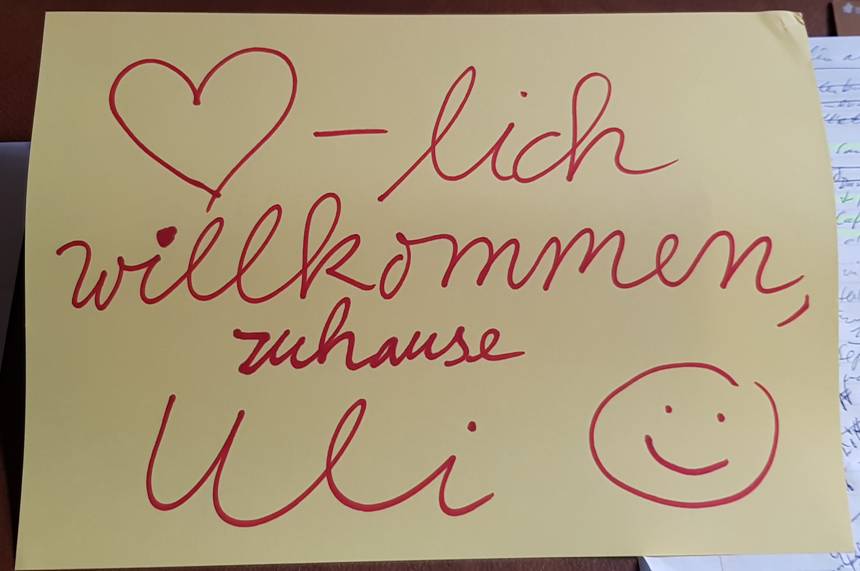 ♥ - lich
willkommen,
zuhause
Uli